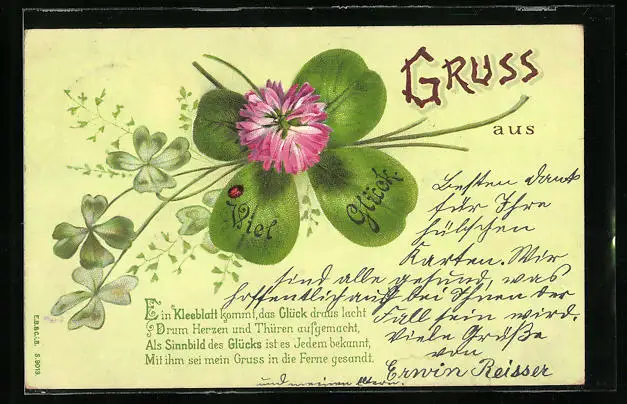 GRUSS
aus
Viel Glück
Besten Dank
für Ihre
hübschen
Karten. Wir
sind alle gesund, was
hoffentlich auch bei Ihnen der
Fall sein wird.
Viele Grüße
von
Erwin Reisser
und meinen Eltern.
Ein Kleeblatt kommt, das Glück draus lacht
Drum Herzen und Thüren aufgemacht,
Als Sinnbild des Glücks ist es Jedem bekannt,
Mit ihm sei mein Gruss in die Ferne gesandt.
E.B.& C.i.B. S. 9013.